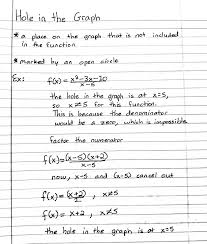 Hole in the Graph
* a place on the graph that is not included
in the function
* marked by an open circle
Ex: f(x) = x²-3x-10
x-5
the hole in the graph is at x=5,
so x≠5 for this function.
This is because the denominator
would be a zero, which is impossible
factor the numerator
f(x)=(x-5)(x+2)
x-5
now, x-5 and (x-5) cancel out
f(x)=(x+2), x≠5
f(x) = x+2, x≠5
the hole in the graph is at x=5